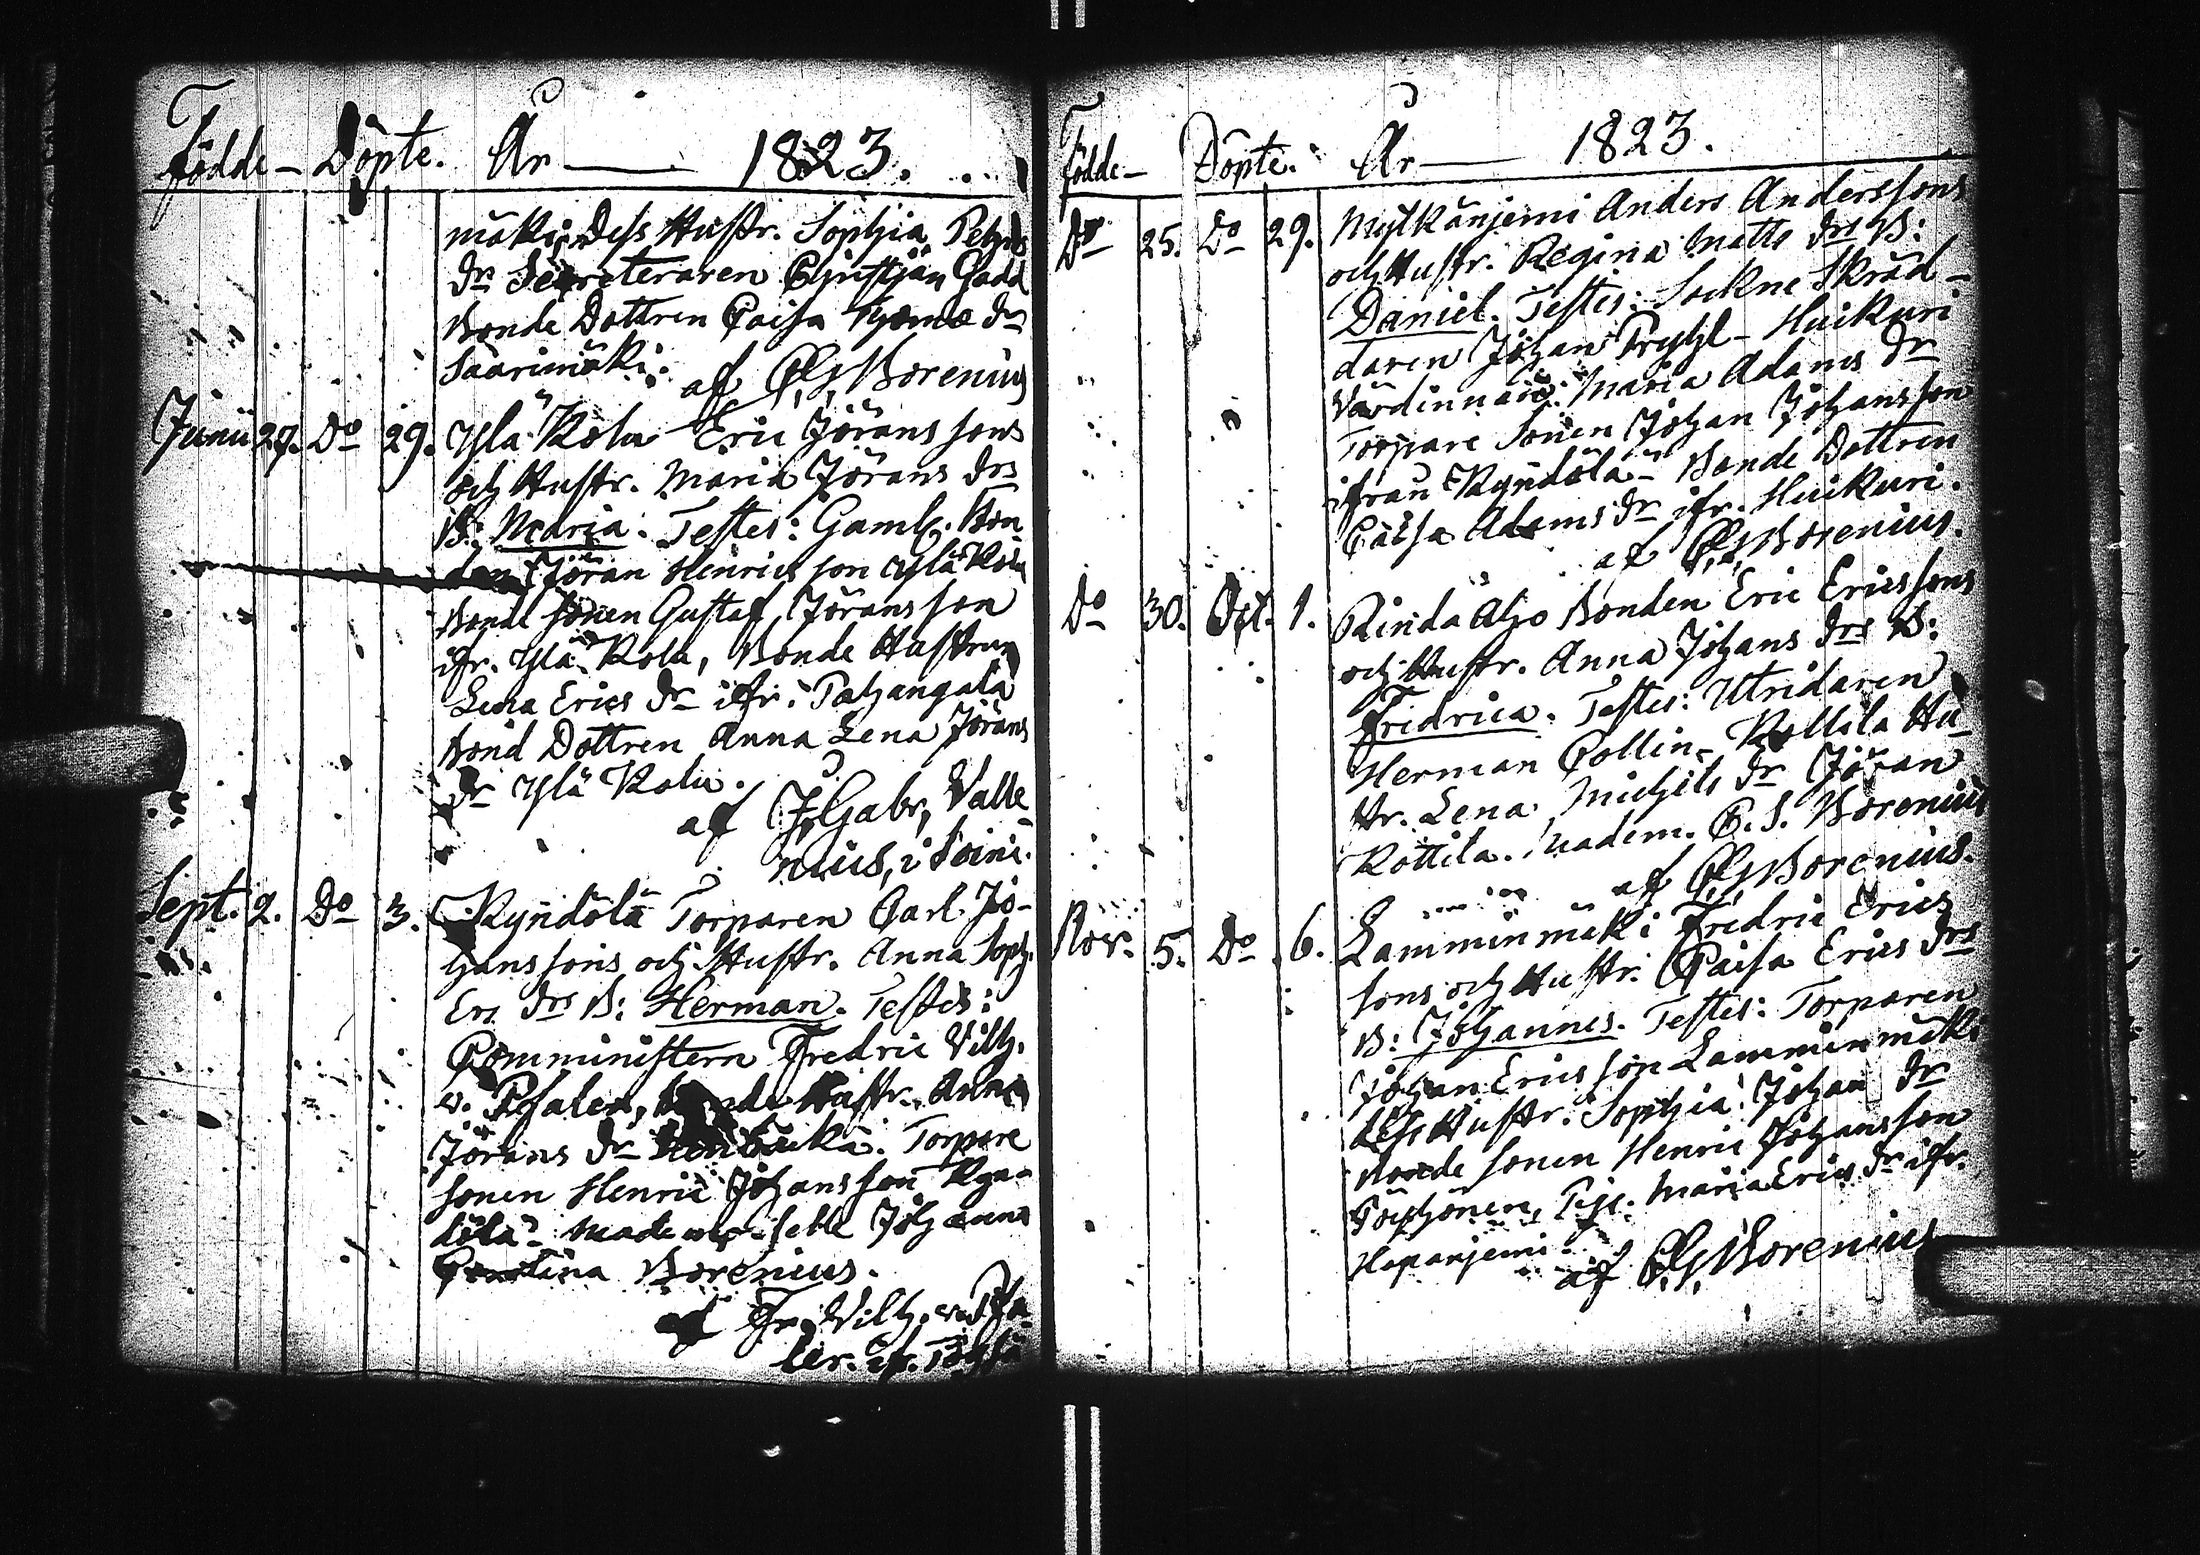 Födde - Döpte. År — 1823.
mäki, Dess Hustr. Sophia
dr Secreteraren Christjan Gadd
Bonde Dottren Caisa dr
Saarimäki.
af C,G,Borenius
Junii 27. Do 29. Ylä Kolu Eric Jöranssons
och Hustr. Maria Jörans drs
B: Maria. Testes: Gaml. Bon
den Jöran Henricsson Ylä Kolu
Bonde sonen Gustaf Jöransson
ifr. Ylä Kolu, Bonde Hustrun
Lena Erics dr ifr. Pahangala
Bond Dottren Anna Lena Jörans
dr Ylä Kolu.
af J,Gabr, Valle
nius, i Soini.
Sept. 2. Do 3. Kyndölä Torparen Carl Jo-
hanssons och Hustr. Anna Soph.
Er. drs B: Herman. Testes:
Comministern Fredric Vilh.
v. Pfaler, Hustr. Anna
Jörans dr Torpare
sonen Henric Johansson Kyn-
dölä - Mademoiselle Johanna
Borenius.
af Fr. Vilh. v. Pfa-
ler.
Födde - Döpte. År — 1823.
Do 25. Do 29. Mytkänjemi Anders Anderssons
och Hustr. Regina Matts drs B:
Daniel. Testes: Sockne Skräd-
daren Johan Pryhl - Huikuri
Värdinnan: Maria Adams dr
Torpare Sonen Johan Johansson
ifrån Kyndölä - Bonde Dottren
Caisa Adams dr ifr. Huikuri.
af C,G,Borenius.
Do 30. Oct. 1. Rinda Aho Bonden Eric Ericssons
och Hustr. Anna Johans drs B:
Fredrica. Testes: Utridaren
Herman Collin, Kottila Hu-
str. Lena Michils dr Jöran
Kottila. Madem. C. S. Borenius
af C,G,Borenius.
Nov. 5. Do 6. Lamminmäki Fredric Erics
sons och Hustr. Caisa Erics drs
B: Johannes. Testes: Torparen
Johan Ericsson Lamminmäki
dess Hustr. Sophia Johan dr
Bonde sonen Henric Johansson
Pöyhönen, Pig. Maria Erics dr ifr.
Hapanjemi.
af C,G,Borenius